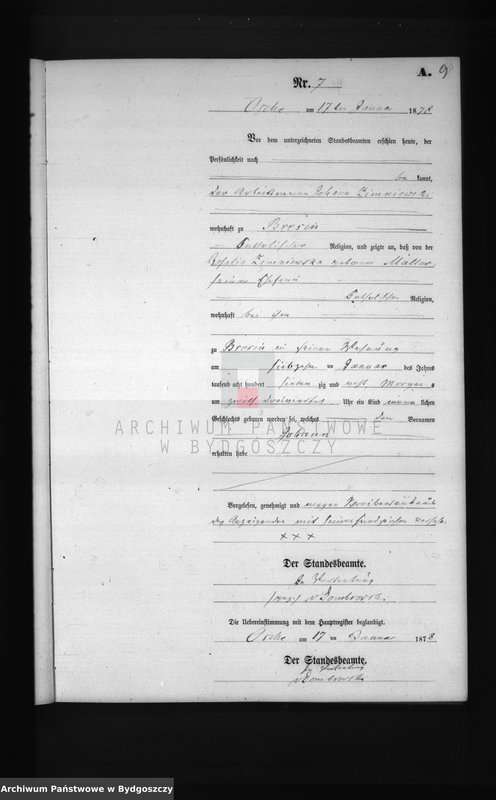 A. 9
Nr. 7
Osche am 17ten Januar 1878
Vor dem unterzeichneten Standesbeamten erschien heute, der
Persönlichkeit nach
be kannt,
der Arbeitsmann Johann Zimniewski
wohnhaft zu Bresin
katholischer Religion, und zeigte an, daß von der
Zimniewska geborene Müller
seiner Ehefrau
katholischer Religion,
wohnhaft bei ihm
zu Bresin in seiner Wohnung
am siebzehn ten Januar des Jahres
tausend acht hundert sieben zig und acht Morgens
um Uhr ein Kind männlichen
Geschlechts geboren worden sei, welches den Vornamen
Johann
erhalten habe
ARCHIWUM PAŃSTWOWE
W BYDGOSZCZY
Vorgelesen, genehmigt und wegen
des Anzeigenden mit seinem Handzeichen
× × ×
Der Standesbeamte.
In Vertretung
gez. v Dombrowski
Die Uebereinstimmung mit dem Hauptregister beglaubigt.
Osche am 17 ten Januar 1878
Der Standesbeamte.
In Vertretung
v Dombrowski
Archiwum Państwowe w Bydgoszczy